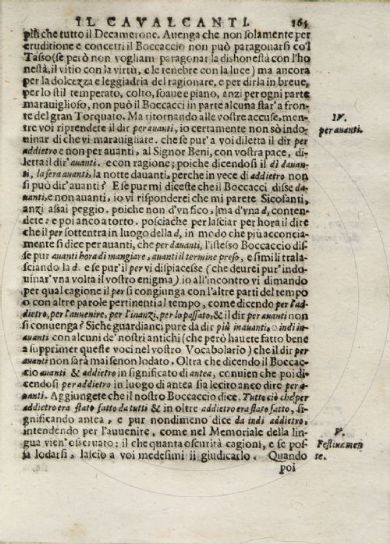 IL CAVALCANTI. 165
più che tutto il Decamerone. Auenga che non solamente per
eruditione e concetti il Boccaccio non può paragonarsi co'l
Tasso (se però non vogliam paragonar la dishonestà con l'ho
nestà, il vitio con la virtù, e le tenebre con la luce) ma ancora
per la dolcezza e leggiadria del ragionare, e per dirla in breue,
per lo stil temperato, colto, soaue e piano, anzi per ogni parte
marauiglioso, non può il Boccacci in parte alcuna star'a fron
te del gran Torquato. Ma ritornando alle vostre accuse, men-
tre voi riprendete il dir per auanti, io certamente non sò indo
uinar di che vi marauigliate. che se pur'a voi diletta il dir per
addietro e non per auanti, al Signor Beni, con vostra pace, di-
letta il dir' auanti. e con ragione; poiche dicendosi il dì dauan
ti, la sera auanti. la notte dauanti, perche in vece di addietro non
si può dir' auanti? E se pur mi diceste che il Boccacci disse da-
uanti, e non auanti, io vi risponderei che mi parete Sicofanti,
anzi assai peggio. poiche non d'vn fico, ma d'vna d, conten-
dete: e poi anco a torto. posciache per lasciar per hora il dire
che il per sottentra in luogo della d, in modo che più acconcia-
mente si dice per auanti, che per dauanti, l'istesso Boccaccio dis
se pur auanti hora di mangiare, auanti il termine preso, e simili tra-
lasciando la d. e se pur'il per vi dispiacesse (che deurei pur'indo-
uinar' vna volta il vostro enigma) io all'incontro vi dimando
per qual cagione il per si congiunga con l'altre parti del tempo
o con altre parole pertinenti al tempo, come dicendo per l'ad-
dietro, per l'auuenire, per l'inanzi, per lo passato, & il dir per auanti non
si conuenga? Siche guardianci pure da dir più inauanti, o indi in
auanti con alcuni de' nostri antichi (che però hauete fatto bene
a supprimer queste voci nel vostro Vocabolario) che il dir per
auanti non sarà mai se non lodato. Oltra che dicendo il Boccac-
cio auanti & addietro in significato di antea, conuien che poi di-
cendosi per addietro in luogo di antea sia lecito anco dire per a-
uanti. Aggiungete che il nostro Boccaccio dice. Tutto ciò che per
addietro era stato fatto da tutti & in oltre addietro era stato fatto, si-
gnificando antea, e pur nondimeno dice da indi addietro,
intendendo per l'auuenire, come nel Memoriale della lin-
gua vien'osseruato: il che quanta oscurità cagioni, e se pos-
sa lodarsi, lascio a voi medesimi il giudicarlo. Quando
poi
IV.
per auanti.
V.
Festinamen
te.